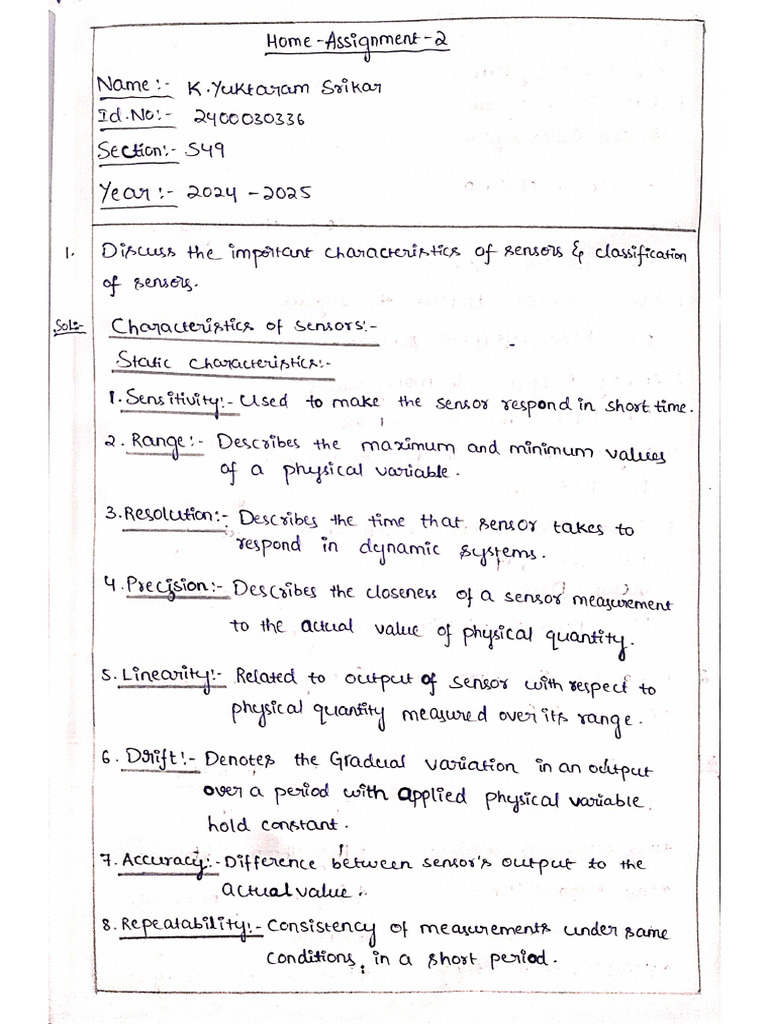 Home-Assignment-2
Name:- K.Yuktaram Srikar
Id.No:- 2400030336
Section:- S49
Year:- 2024-2025
1. Discuss the important characteristics of sensors & classification
of sensors.
Sol:- Characteristics of sensors:-
Static characteristics:-
1. Sensitivity:- Used to make the sensor respond in short time.
2. Range:- Describes the maximum and minimum values
of a physical variable.
3. Resolution:- Describes the time that sensor takes to
respond in dynamic systems.
4. Precision:- Describes the closeness of a sensor measurement
to the actual value of physical quantity.
5. Linearity:- Related to output of sensor with respect to
physical quantity measured over its range.
6. Drift:- Denotes the Gradual variation in an output
over a period with applied physical variable
hold constant.
7. Accuracy:- Difference between sensor's output to the
actual value.
8. Repeatability:- Consistency of measurements under same
conditions, in a short period.